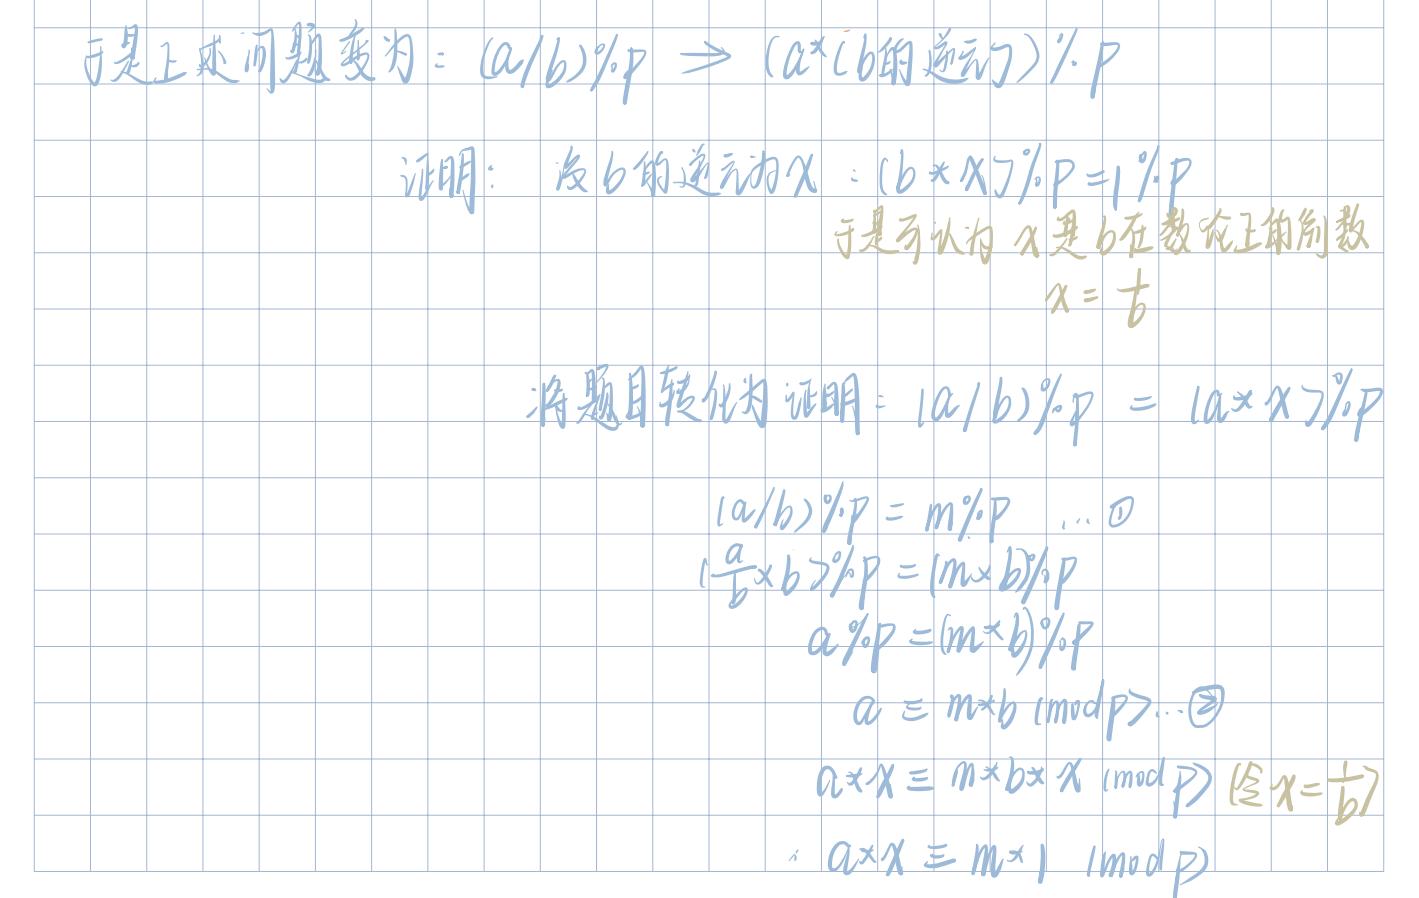 于是上述问题变为：(a/b)%p ⇒ (a*(b的逆元))%p
证明： 设b的逆元为x：(b*x)%p=1%p
于是可认为x是b在数论上的倒数
x = 1/b
将题目转化为证明：(a/b)%p = (a*x)%p
(a/b)%p = m%p ...①
(a/b×b)%p = (m×b)%p
a%p=(m*b)%p
a ≡ m*b (mod p)...②
a*x ≡ m*b*x (mod p) (令x=1/b)
∴ a*x ≡ m*1 (mod p)